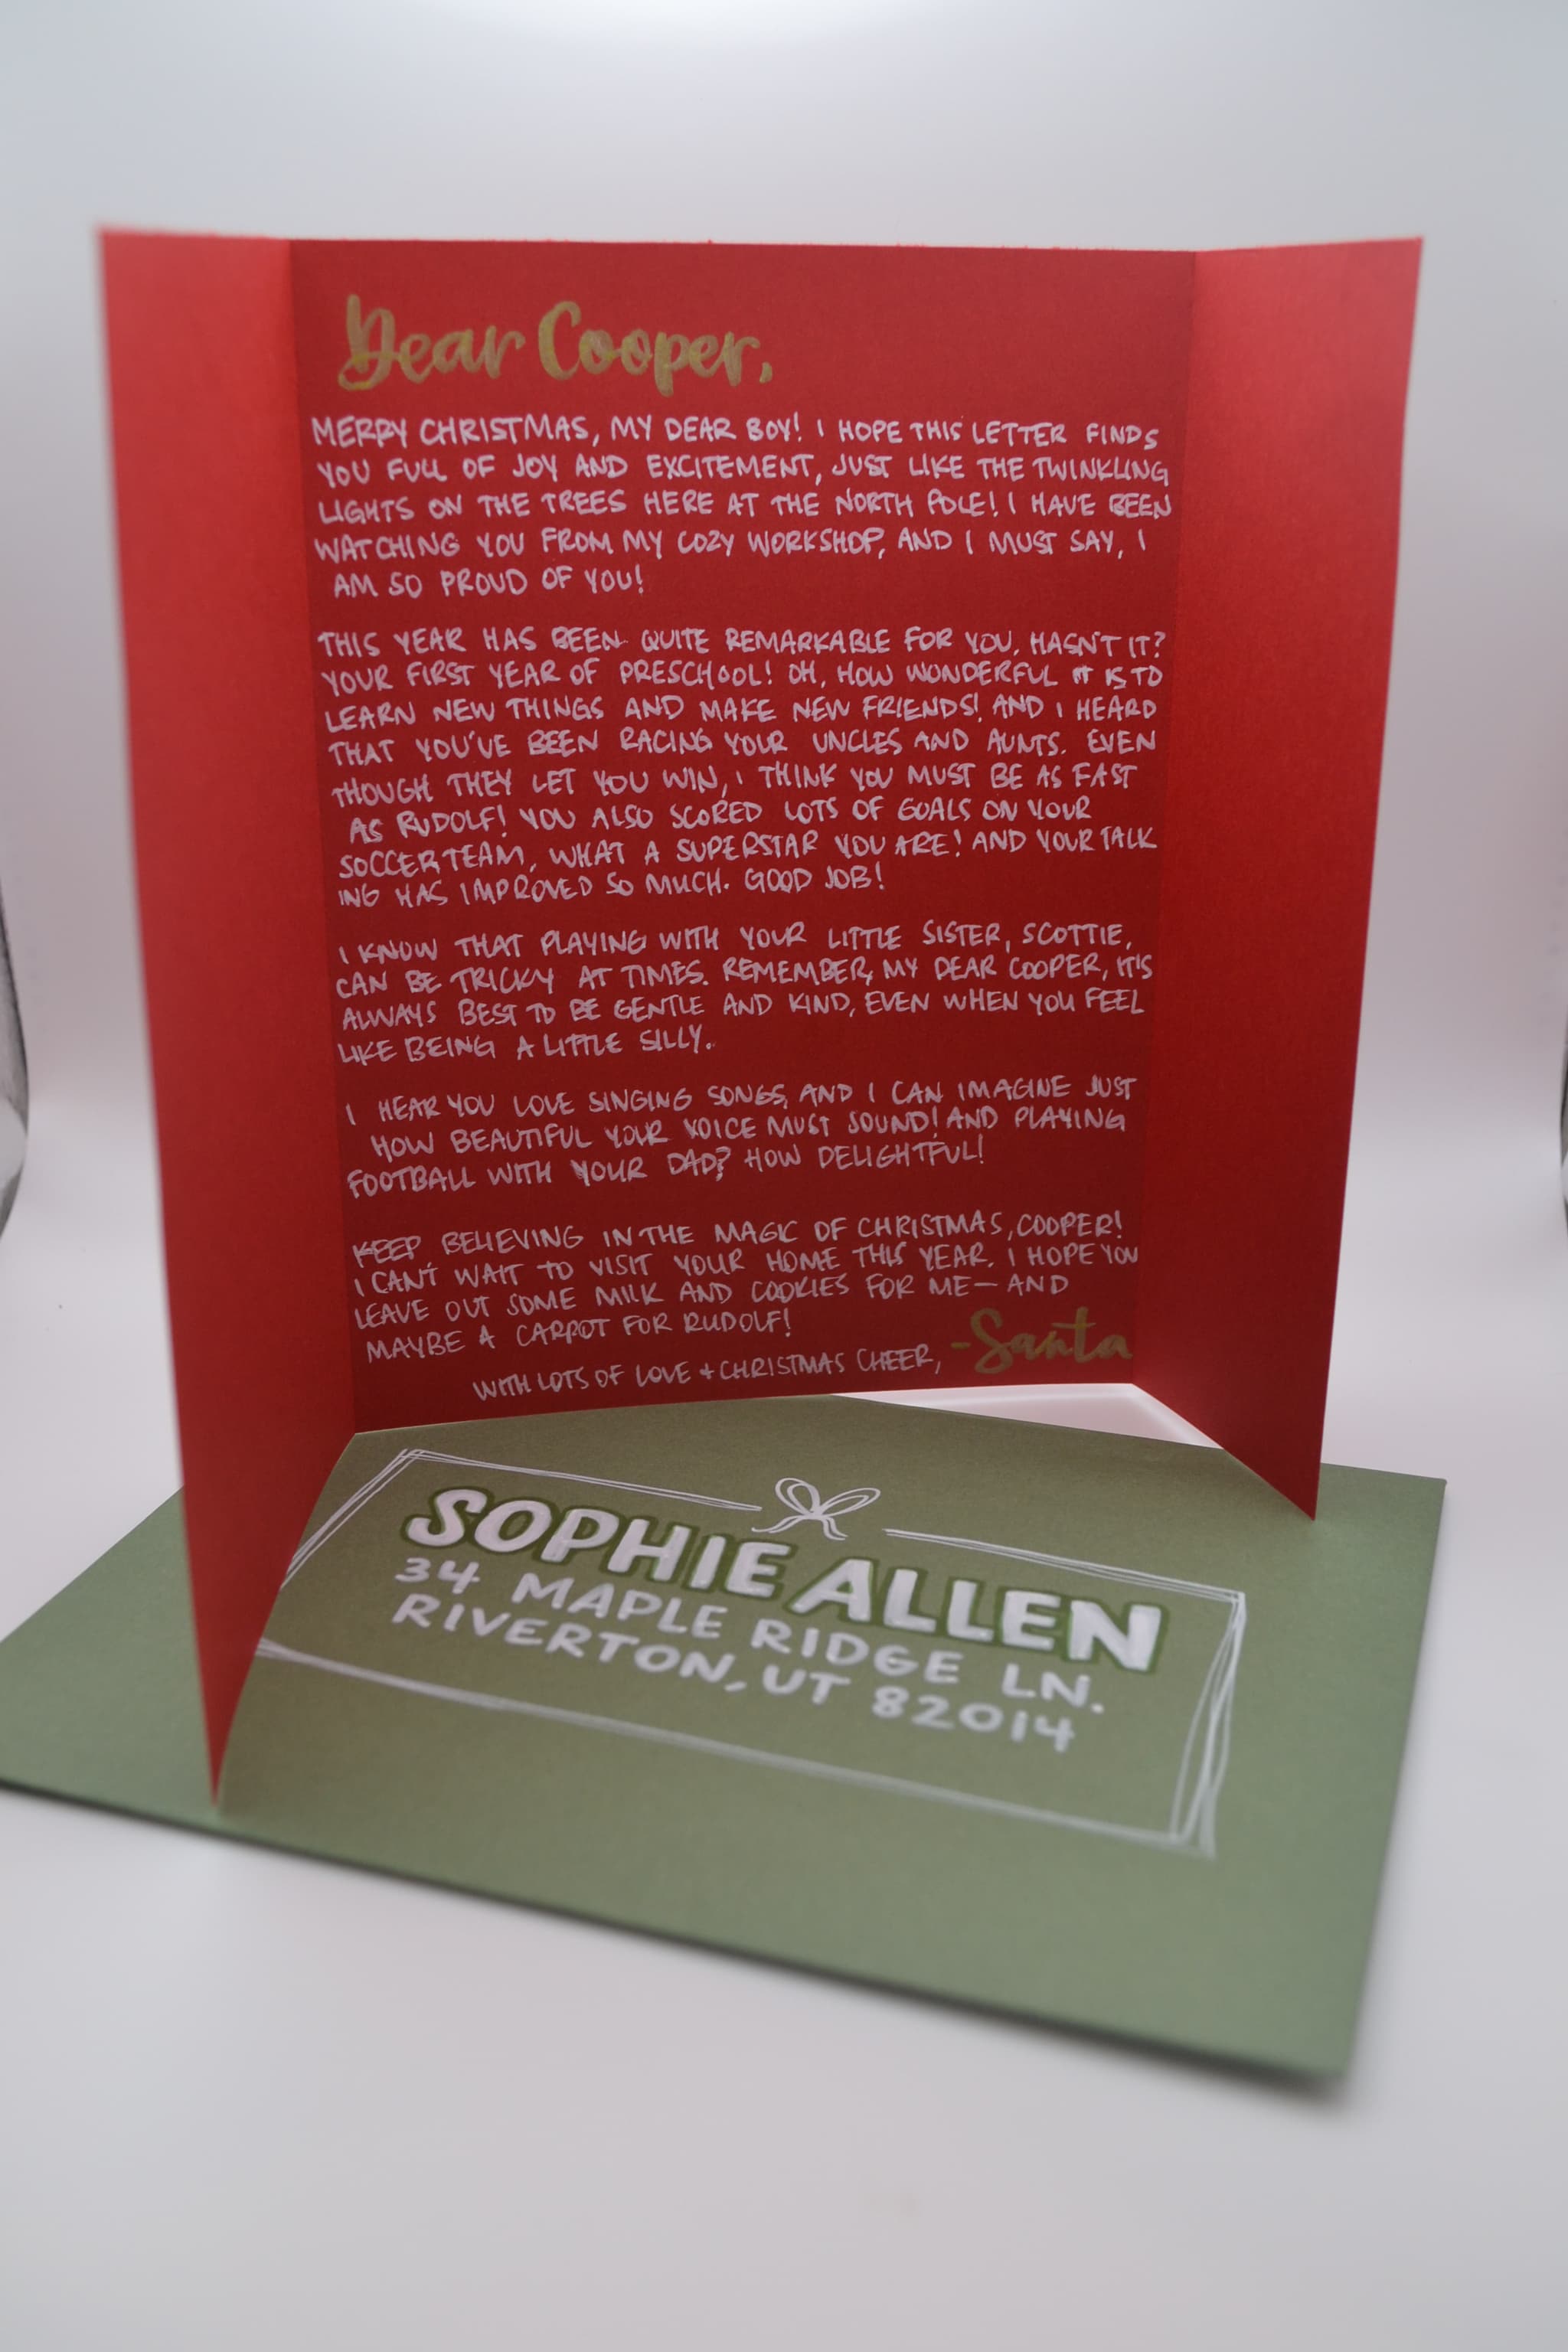 Dear Cooper,
MERRY CHRISTMAS, MY DEAR BOY! I HOPE THIS LETTER FINDS
YOU FULL OF JOY AND EXCITEMENT, JUST LIKE THE TWINKLING
LIGHTS ON THE TREES HERE AT THE NORTH POLE! I HAVE BEEN
WATCHING YOU FROM MY COZY WORKSHOP, AND I MUST SAY, I
AM SO PROUD OF YOU!
THIS YEAR HAS BEEN QUITE REMARKABLE FOR YOU, HASN'T IT?
YOUR FIRST YEAR OF PRESCHOOL! OH, HOW WONDERFUL IT IS TO
LEARN NEW THINGS AND MAKE NEW FRIENDS! AND I HEARD
THAT YOU'VE BEEN RACING YOUR UNCLES AND AUNTS. EVEN
THOUGH THEY LET YOU WIN, I THINK YOU MUST BE AS FAST
AS RUDOLF! YOU ALSO SCORED LOTS OF GOALS ON YOUR
SOCCER TEAM, WHAT A SUPERSTAR YOU ARE! AND YOUR TALK
ING HAS IMPROVED SO MUCH. GOOD JOB!
I KNOW THAT PLAYING WITH YOUR LITTLE SISTER, SCOTTIE,
CAN BE TRICKY AT TIMES. REMEMBER, MY DEAR COOPER, IT'S
ALWAYS BEST TO BE GENTLE AND KIND, EVEN WHEN YOU FEEL
LIKE BEING A LITTLE SILLY.
I HEAR YOU LOVE SINGING SONGS, AND I CAN IMAGINE JUST
HOW BEAUTIFUL YOUR VOICE MUST SOUND! AND PLAYING
FOOTBALL WITH YOUR DAD? HOW DELIGHTFUL!
KEEP BELIEVING IN THE MAGIC OF CHRISTMAS, COOPER!
I CAN'T WAIT TO VISIT YOUR HOME THIS YEAR. I HOPE YOU
LEAVE OUT SOME MILK AND COOKIES FOR ME—AND
MAYBE A CARROT FOR RUDOLF!
WITH LOTS OF LOVE + CHRISTMAS CHEER, -Santa
SOPHIE ALLEN
34 MAPLE RIDGE LN.
RIVERTON, UT 82014